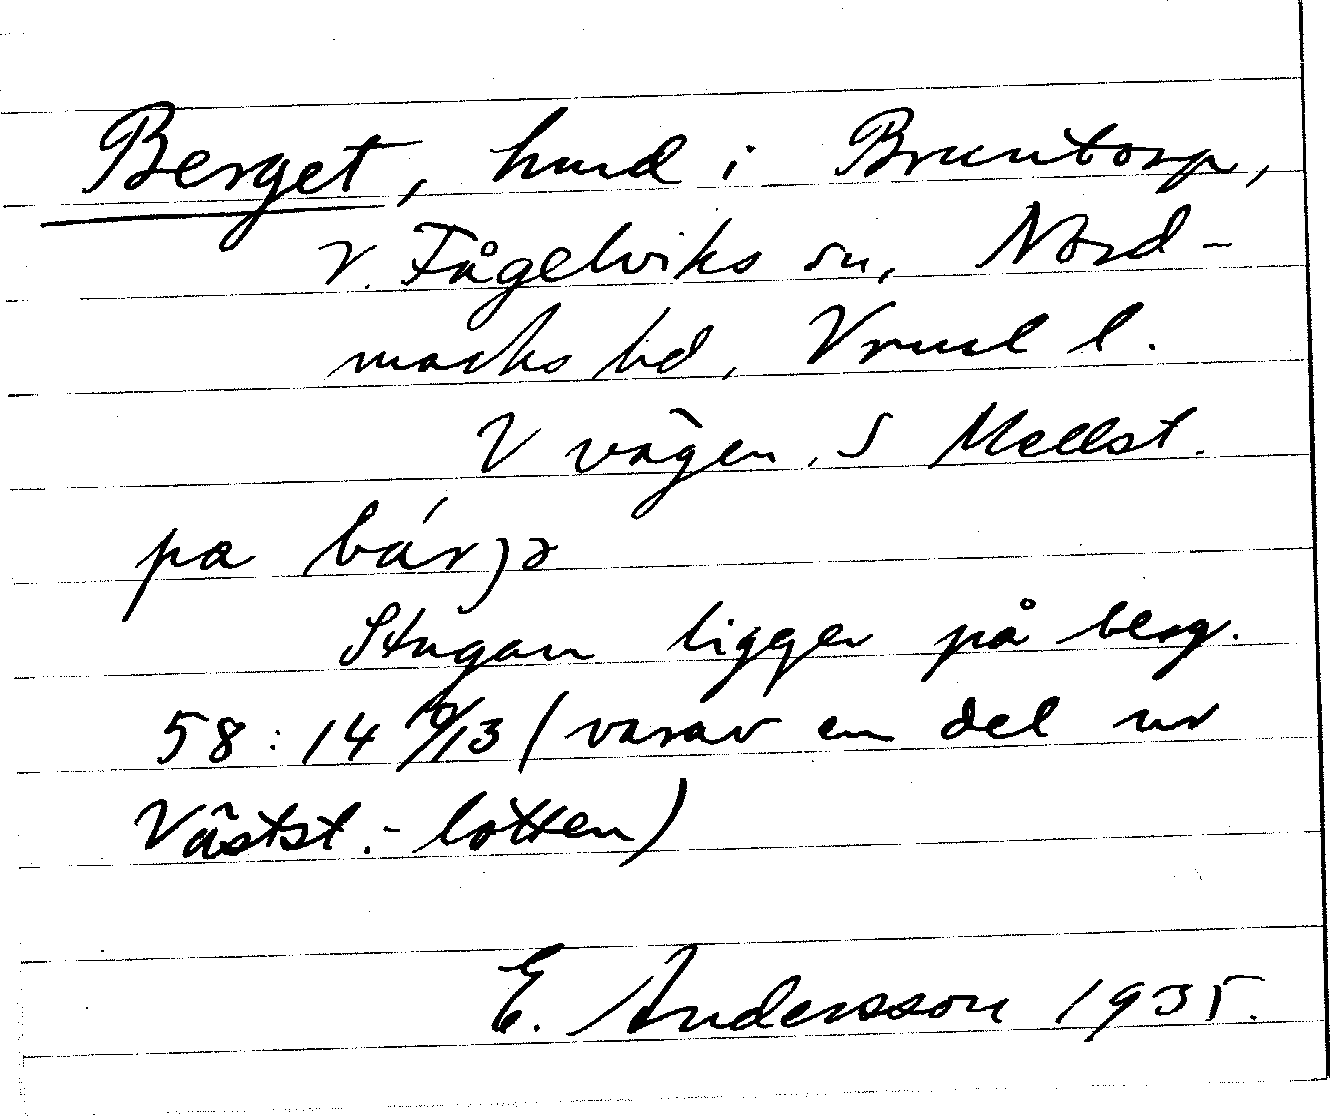 Berget, hmd i Bruntorp,
V. Fågelviks sn, Nord-
marks hd, Vrml l.
V vägen, S Mellst.
pa bárjə
Stugan ligger på berg.
58:14 9/13 (varav en del ur
Västst.-lotten)
E. Andersson 1935.